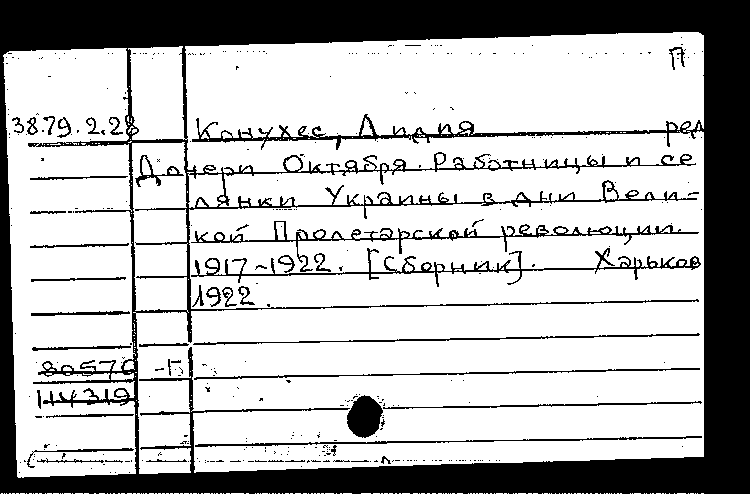 П
38.79.2.28 Конухес, Лидия ред
Дочери Октября. Работницы и се
лянки Украины в дни Вели=
кой Пролетарской революции.
1917-1922. [Сборник]. Харьков
1922.
80576 -П
114319